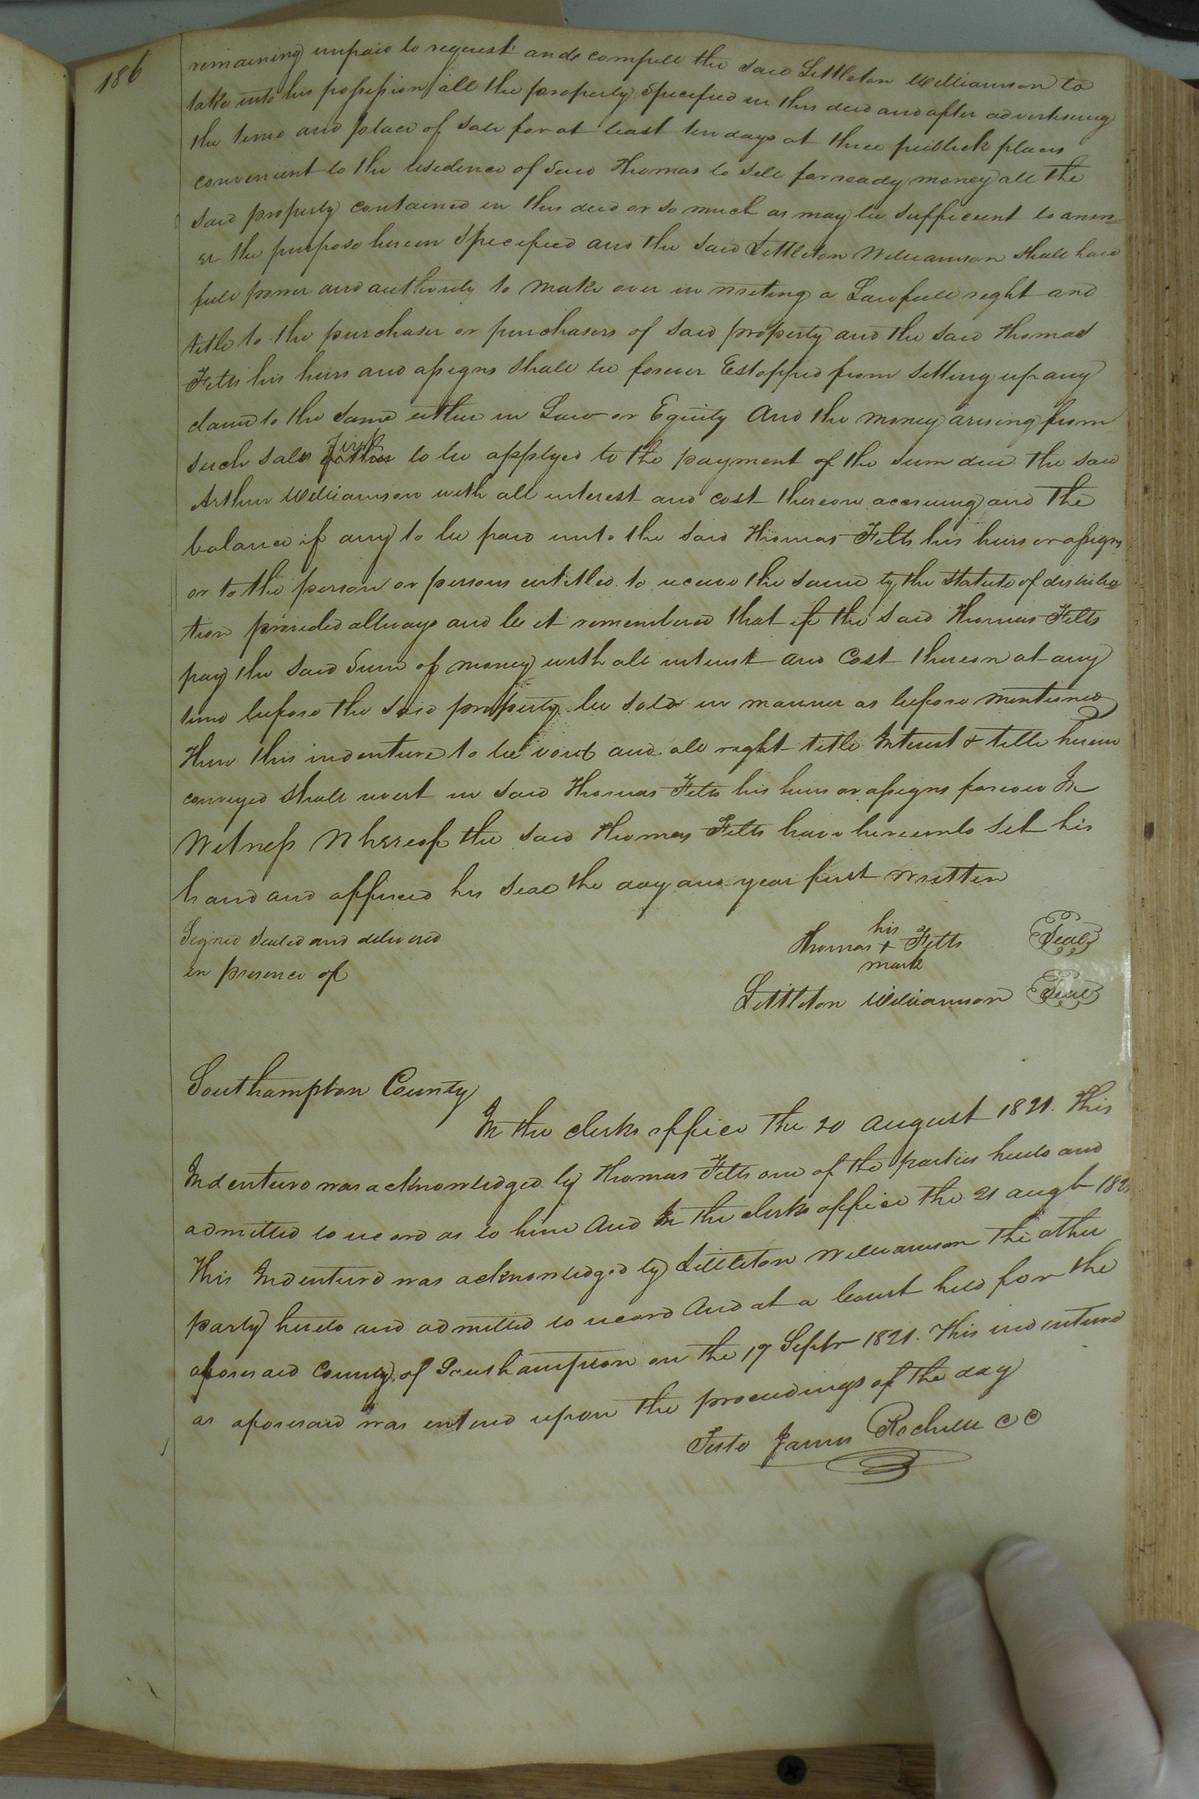 186
remaining unpaid to request and compell the said Littleton Williamson to
take into his possession all the property Specified in this deed and after advertising
the time and place of sale for at least ten days at three publick places
convenient to the residence of said Thomas to sell for ready money all the
said property contained in this deed or so much as may be sufficient to answ
er the purpose herein Specified and the said Littleton Williamson shall have
full power and authority to make over in writing a Lawfull right and
title to the purchaser or purchasers of said property and the said Thomas
Felts his heirs and assigns shall be forever Estopped from setting up any
claim to the same either in Law or Equity And the money arising from
such sale first to be applyed to the payment of the sum due the said
Arthur Williamson with all interest and cost thereon accruing and the
balance if any to be paid unto the said Thomas Felts his heirs or assigns
or to the person or persons entitled to receive the same by the statute of distribu
tion provided allways and be it remembered that if the said Thomas Felts
pay the said Sum of money with all interest and Cost thereon at any
time before the said property be sold in manner as before mentioned
Then this indenture to be void and all right title Interest & title herein
conveyed shall revert in said Thomas Felts his heirs or assigns forever In
Witness Whereof the said Thomas Felts have hereunto set his
hand and affixed his seal the day and year first written
Signed Sealed and delivered
in presence of
his
Thomas + Felts Seal
mark
Littleton Williamson Seal
Southampton County
In the clerks office the 20 August 1821. This
Indenture was acknowledged by Thomas Felts one of the parties hereto and
admitted to record as to him And In the clerks office the 21 augt 182
This Indenture was acknowledged by Littleton Williamson the other
party hereto and admitted to record And at a Court held for the
aforesaid County of Southampton on the 17 Septr 1821. This indenture
as aforesaid was entered upon the proceedings of the day
Teste James Rochelle CC